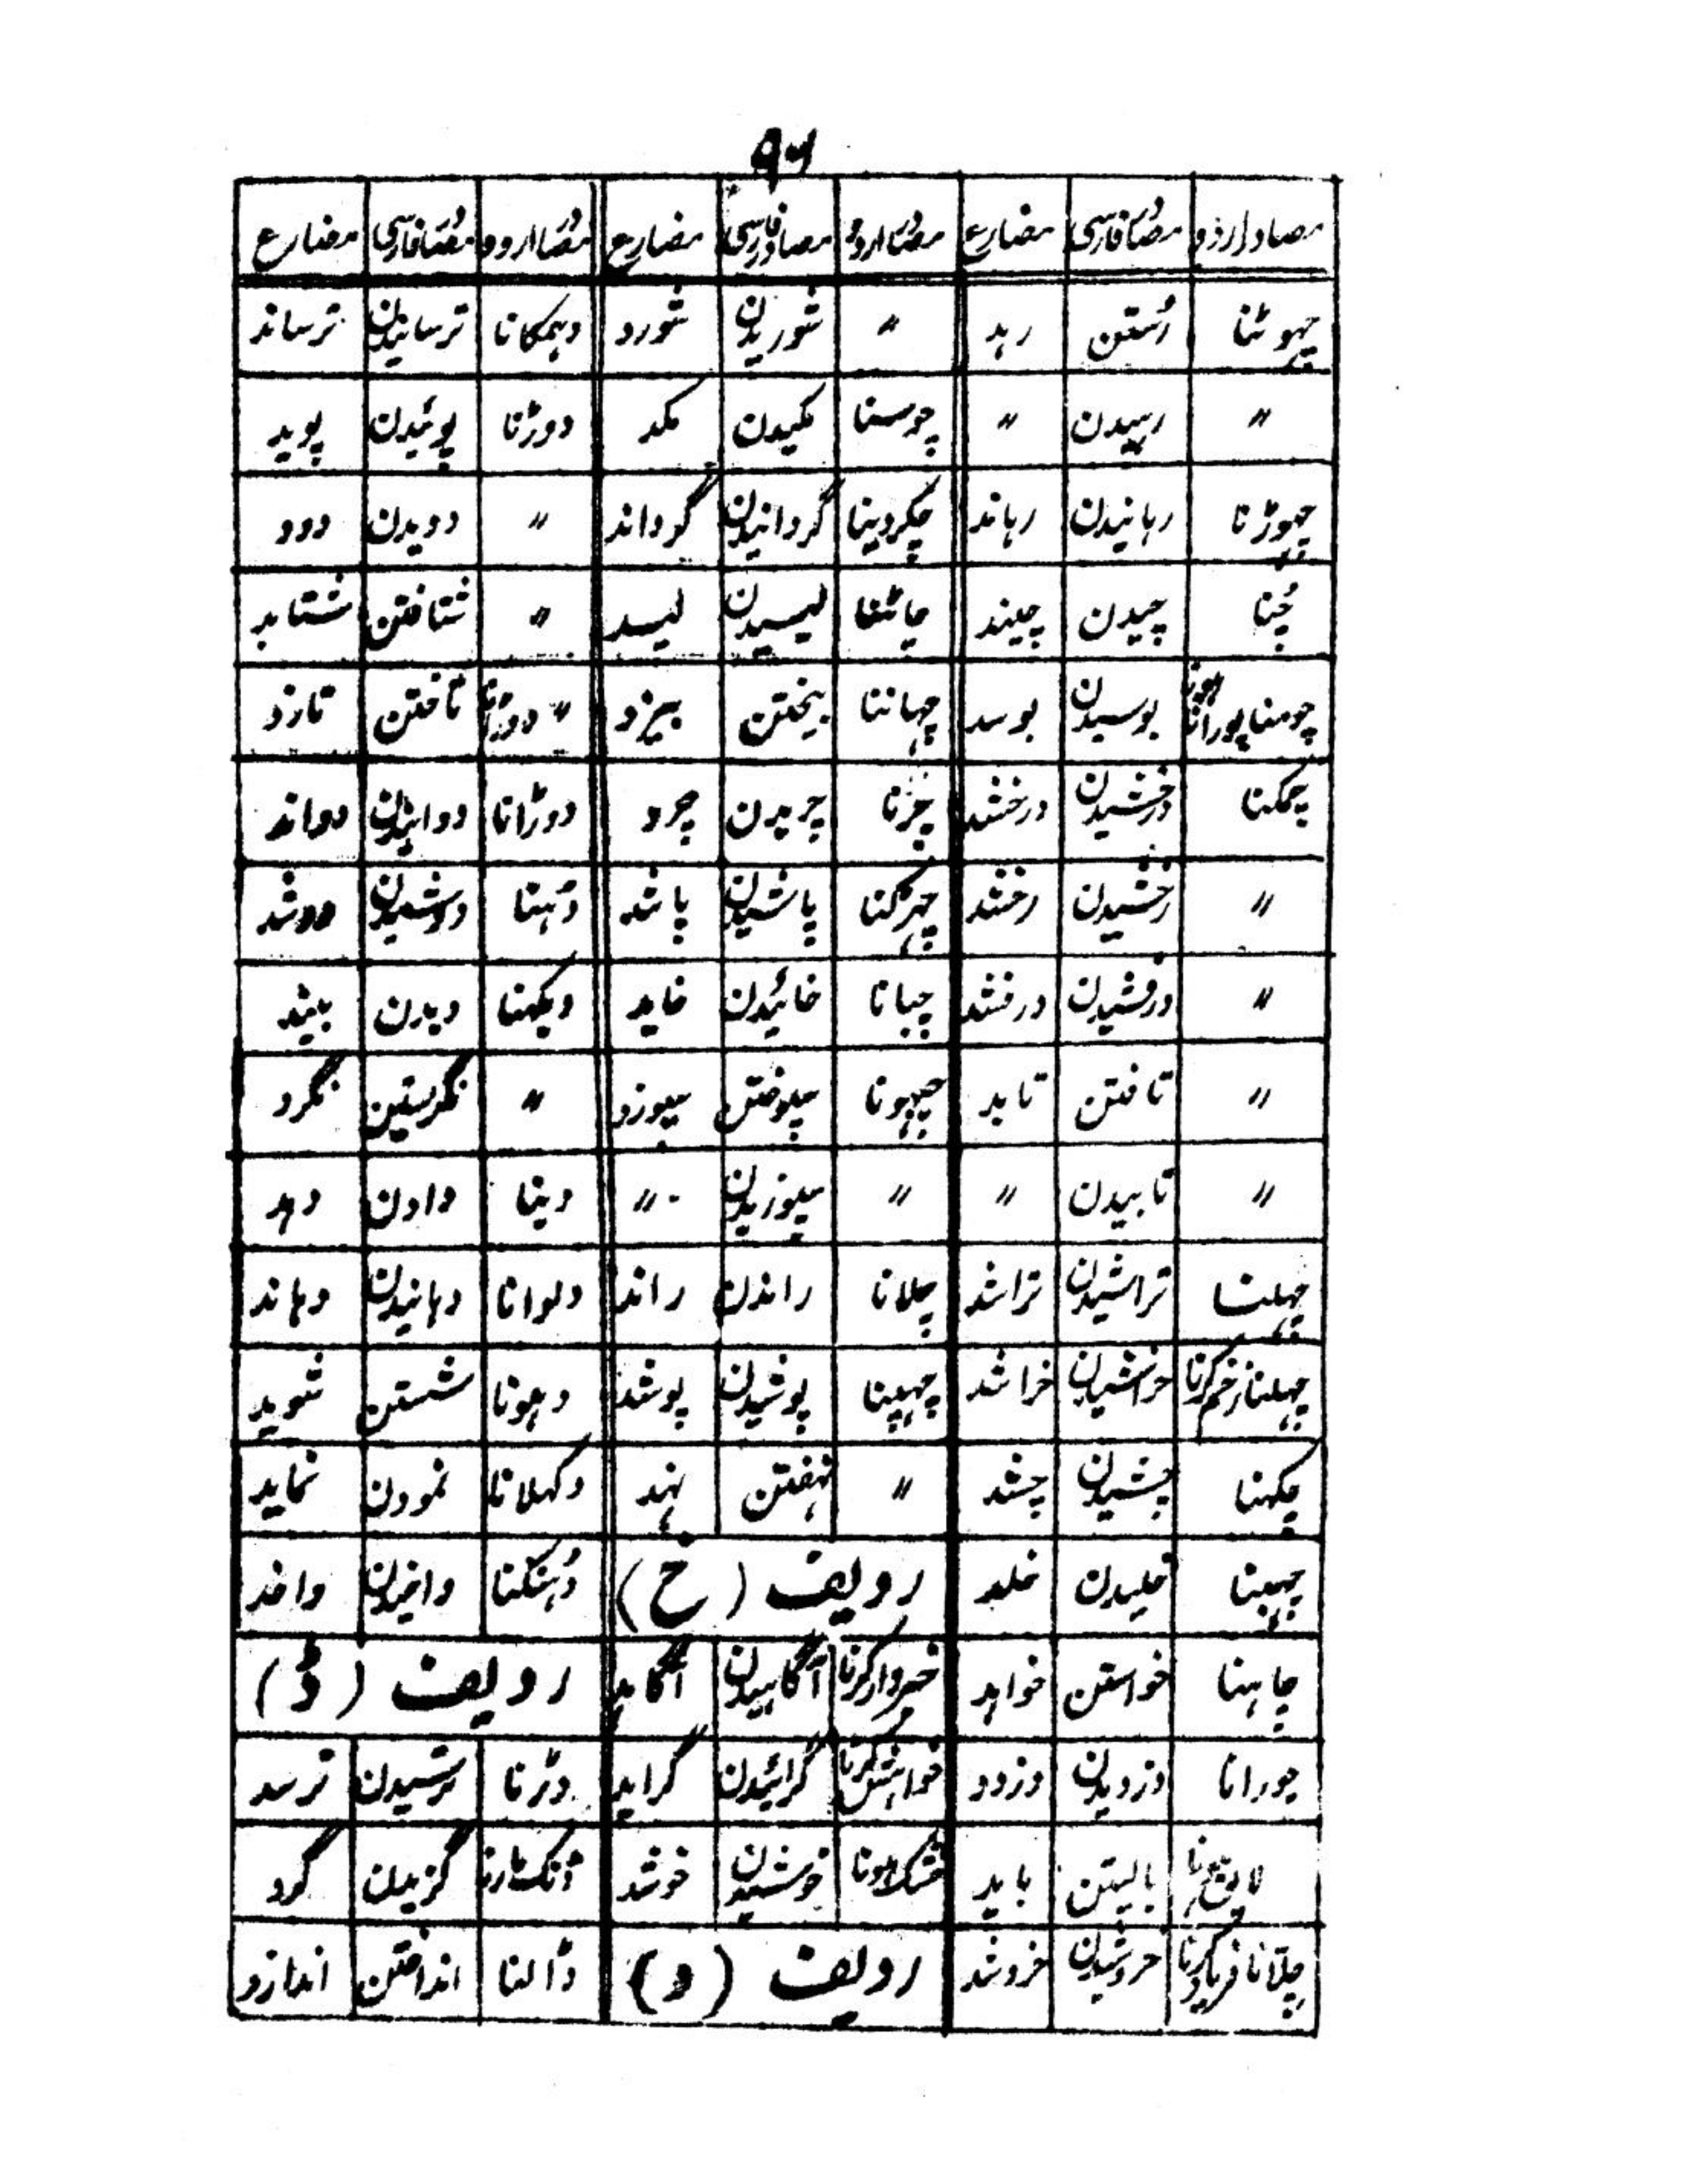 ۹۶
مصادر اردو مصادر فارسی مضارع مصادر اردو مصادر فارسی مضارع مصادر اردو مصادر فارسی مضارع
چہوٹنا رُستن رہد 〃 شوریدن شورد دہمکانا ترسانیدن ترساند
〃 رہیدن 〃 چوسنا مکیدن مکد دوڑنا پوئیدن پوید
چہوڑنا رہانیدن رہاند چکردینا گردانیدن گرداند 〃 دویدن دود
چُننا چیدن چیند چاٹنا لیسیدن لیسد 〃 شتافتن شتابد
چومنا پورانا ہونا بوسیدن بوسد چہاننا بیختن بیزد 〃 دوڑانا تاختن تازد
چمکنا درخشیدن درخشد چرنا چریدن چرد دوڑانا دوانیدن دواند
〃 رخشیدن رخشد چہڑکنا پاشیدن پاشد دُہنا دوشیدن دوشد
〃 درفشیدن درفشد چبانا خائیدن خاید دیکہنا دیدن بیند
〃 تافتن تابد چبہونا سپوختن سپوزد 〃 نگرستن نگرد
〃 تابیدن 〃 〃 سپوزیدن 〃 دینا دادن دہد
چہلنا تراشیدن تراشد چلانا راندن راند دلوانا دہانیدن دہاند
چہلنا زخم کرنا خراشیدن خراشد چہپنا پوشیدن پوشد دہونا شستن شوید
چکہنا چشیدن چشد 〃 نہفتن نہد دکہلانا نمودن نماید
چبہنا خلیدن خلد ردیف (خ) دُہنکنا واخیدن واخد
چاہنا خواستن خواہد خبردار کرنا آگاہیدن آگاہد ردیف (ڈ)
چورانا دزدیدن دزدد خواہش کرنا گرائیدن گراید ڈرنا ترسیدن ترسد
بایستن باید خشک ہونا خوشیدن خوشد ڈنک مارنا گزیدن گزد
چلانا فریاد کرنا خروشیدن خروشد ردیف (د) ڈالنا انداختن اندازد